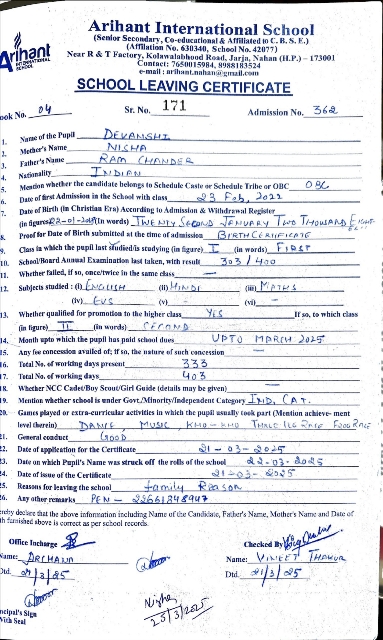 Arihant
INTERNATIONAL SCHOOL
Arihant International School
(Senior Secondary, Co-educational & Affiliated to C.B.S.E.)
(Affilation No. 630340, School No. 42077)
Near R & T Factory, Kolawalabhood Road, Jarja, Nahan (H.P.) - 173001
Contact: 7650015984, 8988183524
e-mail : arihant.nahan@gmail.com
SCHOOL LEAVING CERTIFICATE
ook No. 04 Sr. No. 171 Admission No. 362
1. Name of the Pupil DEVANSHI
2. Mother's Name NISHA
3. Father's Name RAM CHANDER
4. Nationality INDIAN
5. Mention whether the candidate belongs to Schedule Caste or Schedule Tribe or OBC OBC
6. Date of first Admission in the School with class 23 Feb, 2022
7. Date of Birth (in Christian Era) According to Admission & Withdrawal Register
(in figures) 22-01-2018 (in words) TWENTY SECOND JANUARY TWO THOUSAND EIGHT
8. Proof for Date of Birth submitted at the time of admission BIRTH CERTIFICATE
9. Class in which the pupil last studied/is studying (in figure) I (in words) FIRST
10. School/Board Annual Examination last taken, with result 303/400
11. Whether failed, if so, once/twice in the same class —
12. Subjects studied : (i) ENGLISH (ii) HINDI (iii) MATHS
(iv) EVS (v) - (vi) -
13. Whether qualified for promotion to the higher class YES If so, to which class
(in figure) II (in words) SECOND
14. Month upto which the pupil has paid school dues UPTO MARCH 2025
15. Any fee concession availed of; if so, the nature of such concession —
16. Total No. of working days present 333
17. Total No. of working days 403
18. Whether NCC Cadet/Boy Scout/Girl Guide (details may be given) —
19. Mention whether school is under Govt./Minority/Independent Category IND. CAT.
20. Games played or extra-curricular activities in which the pupil usually took part (Mention achieve- ment
level therein) DANCE, MUSIC, KHO-KHO THREE LEG RACE
21. General conduct GOOD
22. Date of application for the Certificate 21-03-2025
23. Date on which Pupil's Name was struck off the rolls of the school 22-03-2025
24. Date of issue of the Certificate 21-03-2025
25. Reasons for leaving the school family Reason
26. Any other remarks PEN - 22661348947
ereby declare that the above information including Name of the Candidate, Father's Name, Mother's Name and Date of
th furnished above is correct as per school records.
Office Incharge Checked By
Name: ARCHANA Name: VINEET THAKUR
Dtd. 21/3/25 Dtd. 21/3/25
Nisha
25/3/2025
ncipal's Sign
With Seal